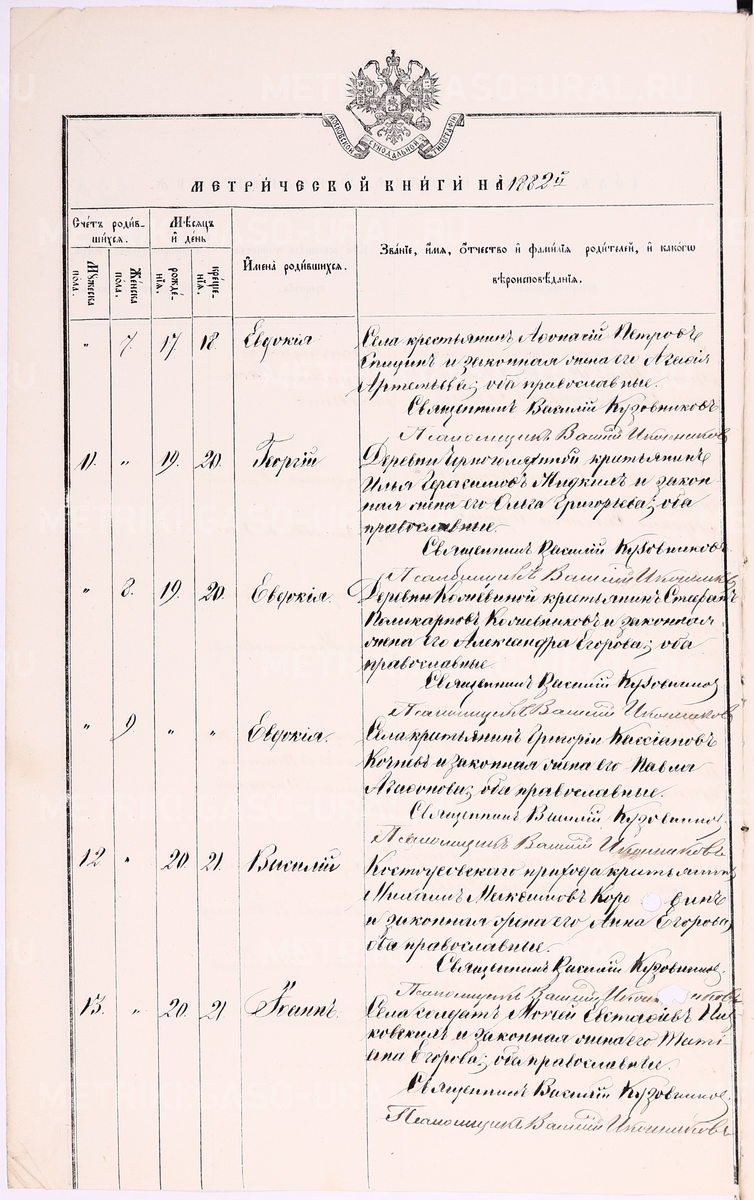 МОСКОВСКОЙ СѴНОДАЛЬНОЙ ТИПОГРАФІИ
МЕТРИ́ЧЕСКОЙ КНИ́ГИ НА̀ 1882 й
Счетъ роди́в-
шихся.
Мѣсяцъ
и҆ де́нь
И҆мена̀ роди́вшихся.
Зва́нїе, и҆́мя, ѻ҆́тчество и҆ фами́лїя роди́телей, и҆ како́гѡ
вѣроисповѣ́данїя.
Мꙋ́жеска
по́ла.
Же́нска
по́ла.
рожде́-
нїя.
креще́-
нїя.
" 7. 17 18 Евдокія
Села крестьянинъ Афонасій Петровъ
Спицинъ и законная жена его Агафія
Артемьева; оба православные.
Священникъ Василій Кузовниковъ
Псаломщикъ Василій Иконниковъ
11. " 19. 20. Георгій
Деревни крестьянинъ
Илья Герасимовъ Жидкихъ и закон-
ная жена его Ольга Григорьева; оба
православные.
Священникъ Василій Кузовниковъ
Псаломщикъ Василій Иконниковъ
" 8. 19. 20. Евдокія.
Деревни крестьянинъ Стефанъ
Поликарповъ Кожевниковъ и законная
жена его Александра Егорова; оба
православные.
Священникъ Василій Кузовниковъ
Псаломщикъ Василій Иконниковъ
" 9 " " Евдокія.
Села крестьянинъ Григорій Кассіановъ
и законная жена его Павла
Агафонова; оба православные.
Священникъ Василій Кузовниковъ
Псаломщикъ Василій Иконниковъ
12 " 20. 21. Василій
Костоусовскаго прихода крестьянинъ
Михаилъ Максимовъ
и законная жена его Анна Егорова;
оба православные.
Священникъ Василій Кузовниковъ
Псаломщикъ Василій Иконниковъ
13. " 20. 21 Іоаннъ.
Села солдатъ Мокей Евстафіевъ Пур-
ковскихъ и законная жена его Тати-
ана Егорова; оба православные.
Священникъ Василій Кузовниковъ
Псаломщикъ Василій Иконниковъ